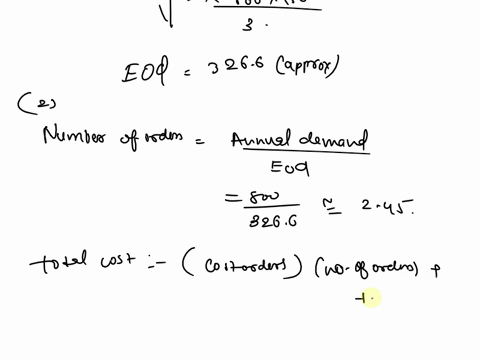 3.
EOQ = 326.6 (approx)
(2)
Number of orders = Annual demand
EOQ
= 800
326.6 ≈ 2.45.
total cost :- (cost orders) (no. of orders) +